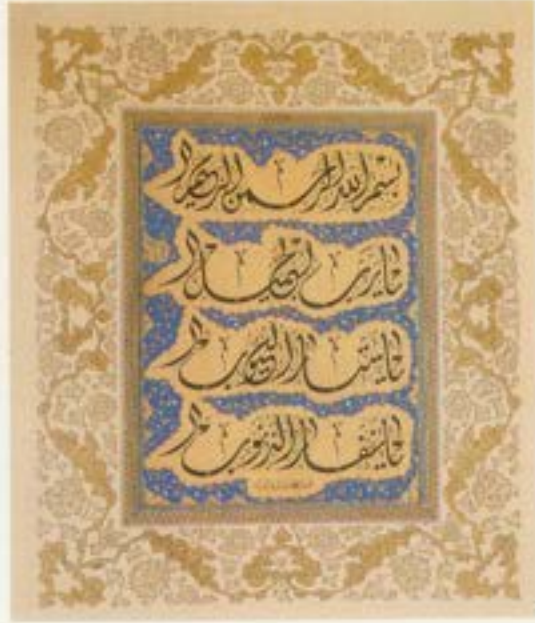 بسم الله الرحمن الرحيم
يا رب
يا ستار العيوب
يا غفار الذنوب